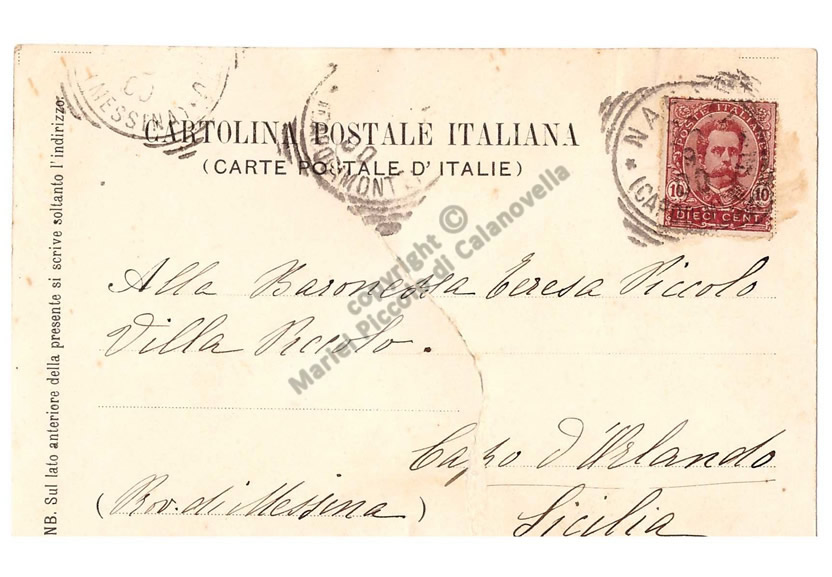 (MESSINA)
00
CARTOLINA POSTALE ITALIANA
(CARTE POSTALE D'ITALIE)
NA
POSTE ITALIANE
10 10
DIECI CENT
NB. Sul lato anteriore della presente si scrive soltanto l'indirizzo.
Alla Baronessa Teresa Piccolo
Villa Piccolo.
Capo d'Orlando
(Prov. di Messina)
Sicilia
copyright ©
Mariel Piccolo di Calanovella